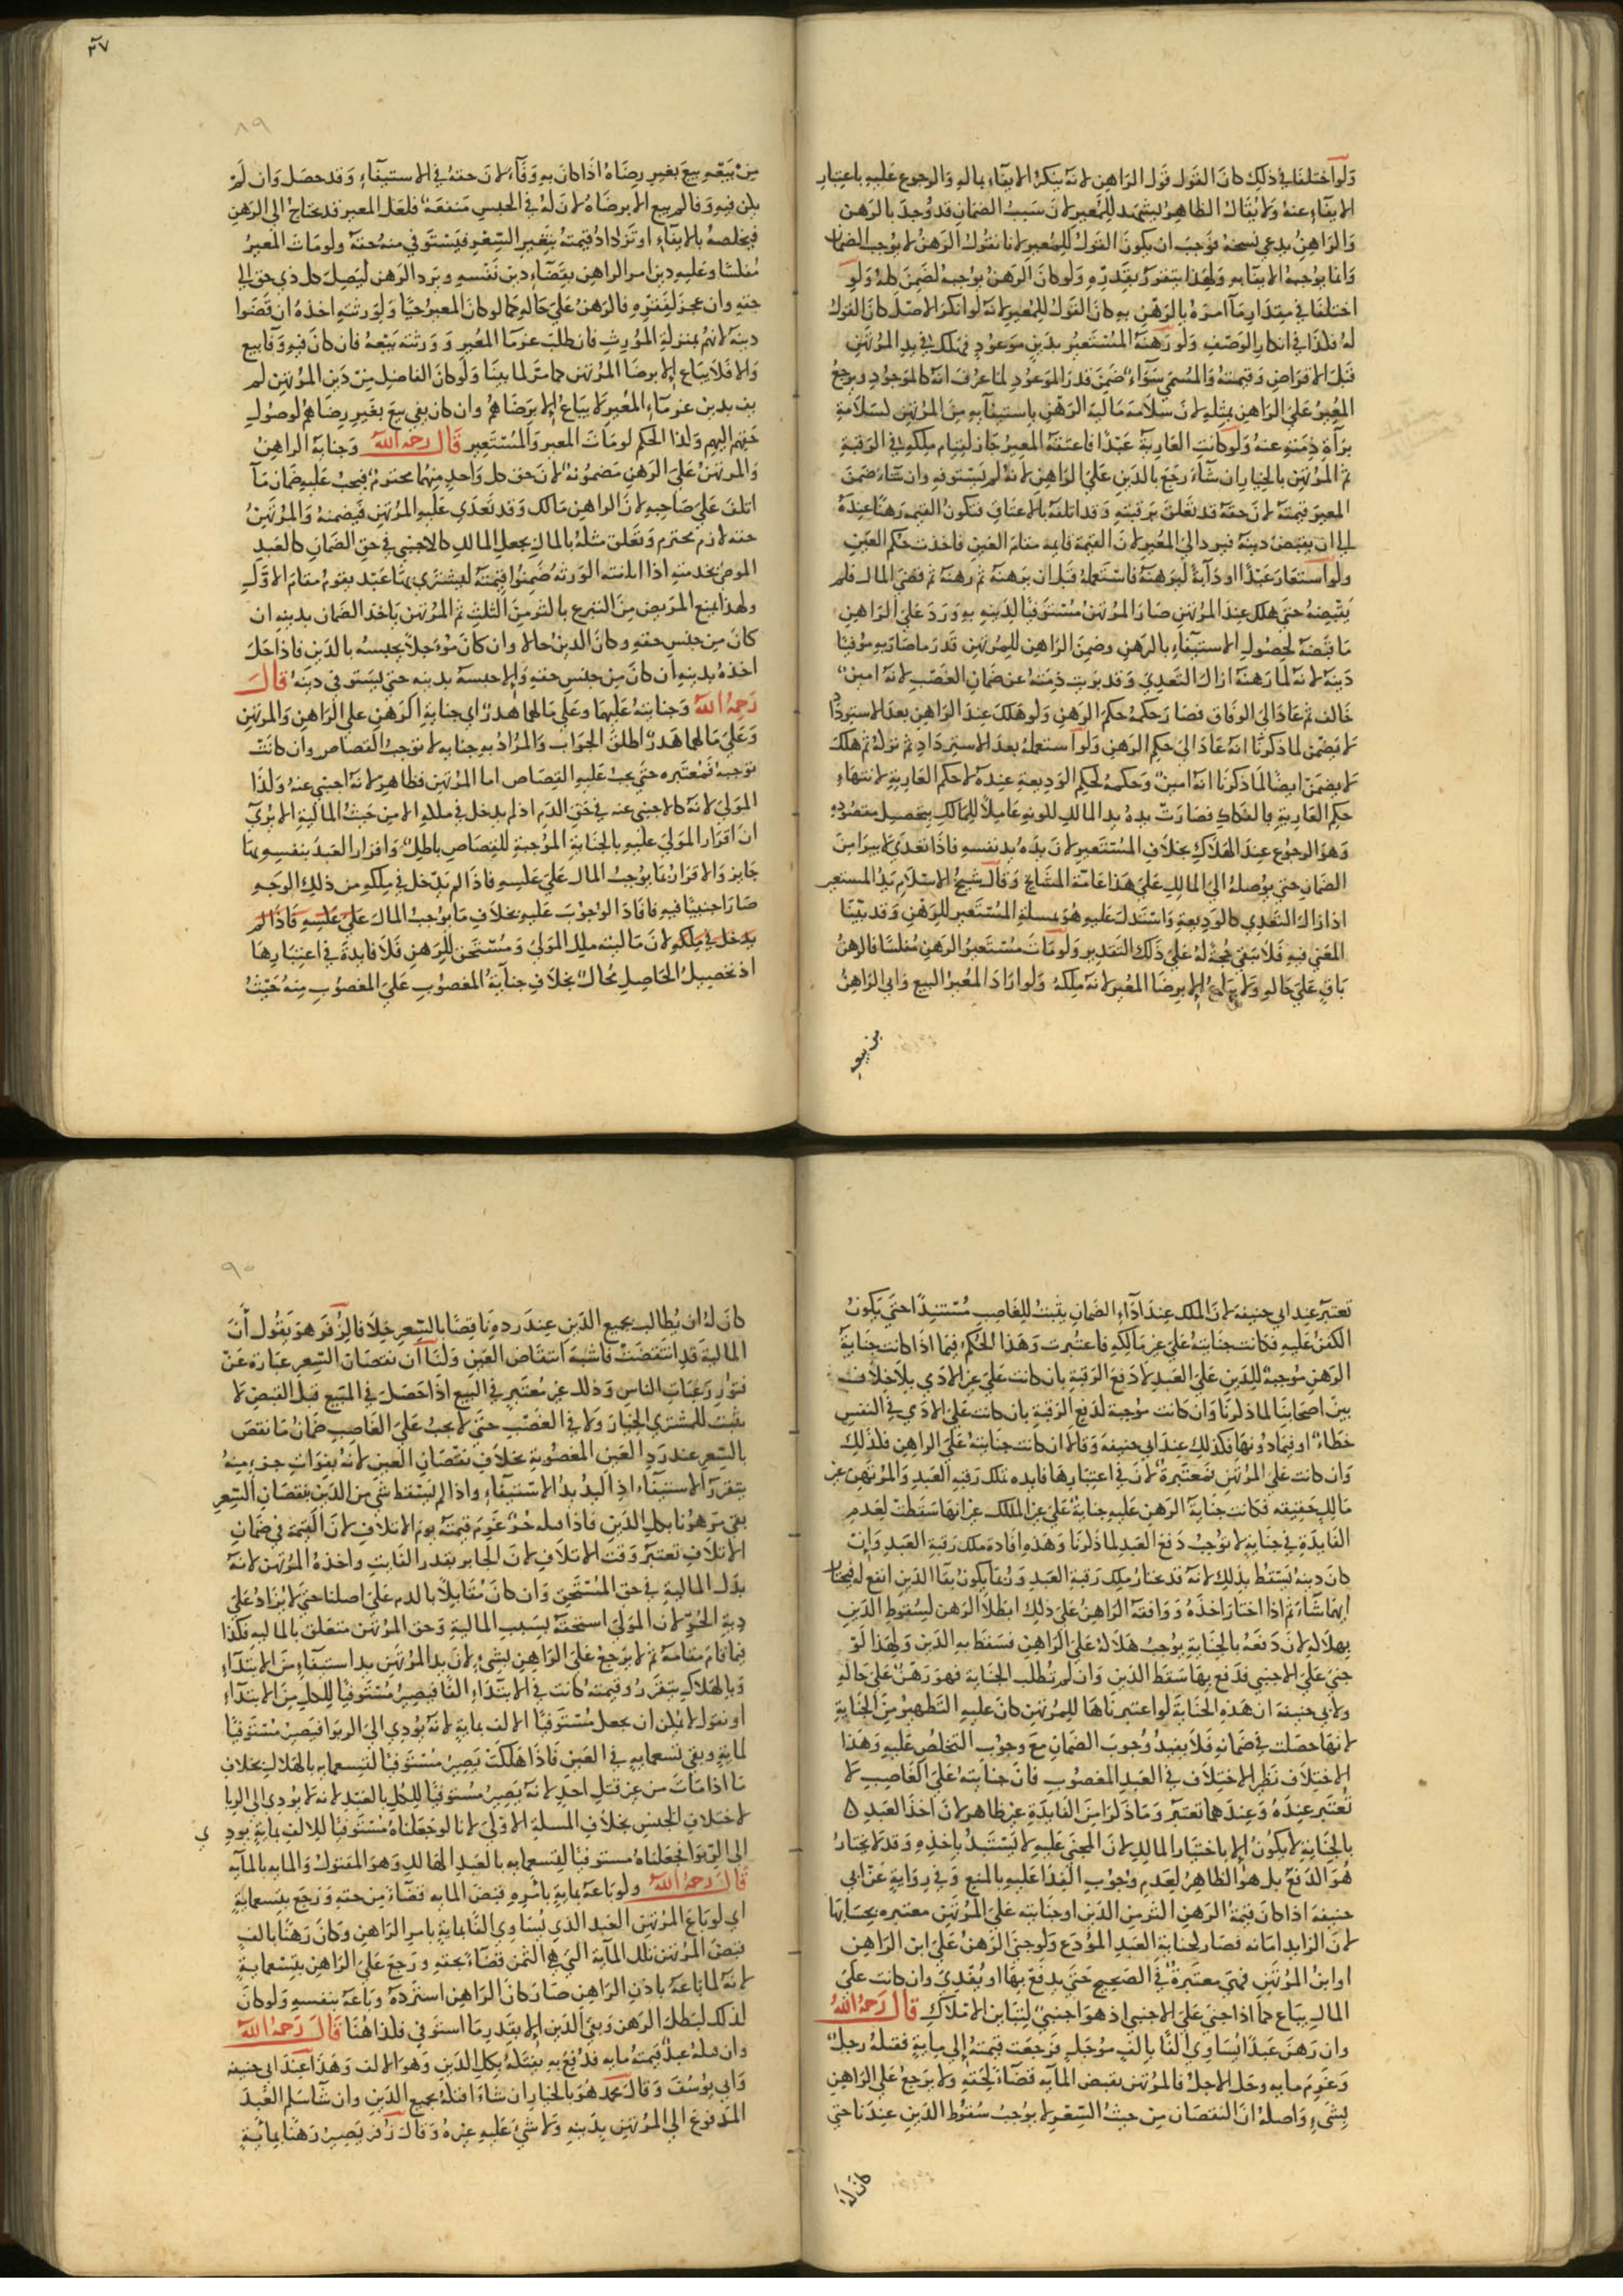 ولو اختلفا في ذلك كان القول قول الراهن لانه ينكر الايفاء بماله والرجوع عليه باعتبار
الايفاء عنه ولا يقال الظاهر يشهد للمعير لان سبب الضمان قد وجد بالرهن
والراهن يدعي نسخه فوجب ان يكون القول للمعير لانا نقول الرهن لا يوجب الضمان
وانما يوجبه الايفا به ولهذا يتقرر بقدره ولو كان الرهن يوجبه لضمن كله ولو
اختلفا في مقدار ما امره بالرهن به كان القول للمعير لانه لو انكر الاصل كان القول
له فكذا في انكار الوصف ولو رهنه المستعير بدين موعود فهلك في يد المرتهن
قبل الاقراض وقيمته والمسمى سواء ضمن قدر الموعود لما عرف انه كالموجود ويرجع
المعير على الراهن بمثله لان سلامة مالية الرهن باستيفايه من المرتهن كسلامته
براة ذمته عنه ولو كانت العارية عبدا فاعتقه المعير جاز لقيام ملكه في الرقبة
ثم المرتهن بالخيار ان شاء رجع بالدين على الراهن لانه لم يستوفه وان شاء ضمن
المعير قيمته لان حقه قد تعلق برقبته وقد اتلفه بالاعتاق فتكون القيمة رهنا عنده
الى ان يقبض دينه فيردها الى المعير لان القيمة قايمه مقام العين فاخذت حكم العين
ولو استعار عبدا او دابة ليرهنه فاستعمله قبل ان يرهنه ثم رهنه ثم قضى المال فلم
يقبضه حتى هلك عند المرتهن صار المرتهن مستوفيا لدينه به ورد على الراهن
ما قبضه لحصول الاستيفاء بالرهن وضمن الراهن للمرتهن قدر ما صار به موفيا
دينه لانه لما رهنه ازال التعدي وقد برئت ذمته عن ضمان الغصب لانه امين
خالف ثم عاد الى الوفاق فصار حكمه حكم الرهن ولو هلك عند الراهن بعد الاسترداد
لا يضمن لما ذكرنا انه عاد الى حكم الرهن ولو استعمله بعد الاسترداد ثم تركه ثم هلك
لا يضمن ايضا لما ذكرنا انه امين وحكمه لحكم الوديعة عنده لا حكم العارية لانتهاء
حكم العارية بالفكاك فصارت يده يد المالك لكونه عاملا للمالك بتحصيل مقصوده
وهو الرجوع عند الهلاك بخلاف المستعير لان يده يد نفسه فاذا تعدى لا يبرا من
الضمان حتى يوصله الى المالك على هذا عامة المشايخ وقال شيخ الاسلام يد المستعير
اذا زال التعدي كالوديعة واستدل عليه هو بمسلة المستعير للرهن وقد بينا
المعنى فيه فلا تبقى حجة له على ذلك التقدير ولو مات مستعير الرهن مفلسا فالرهن
باق على حاله ولا يباع الا برضا المعير لانه ملكه ولو اراد المعير البيع وابى الراهن
من بيعه
٣٧
٨٩
من بيعه بيع بغير رضاه اذا كان به وفاء لان حقه في الاستيفاء وقد حصل وان لم
يكن فيه وفا لم يبع الا برضاه لان له في الحبس منفعة فلعل المعير قد يحتاج الى الرهن
فيخلصه بالايفاء او تزداد قيمته بتغير السعر فيستوفي منه حقه ولو مات المعير
مفلسا وعليه دين امر الراهن بقضاء دين نفسه ويرد الرهن ليصل كل ذي حق الى
حقه وان عجز لفقره فالرهن على حاله كما لو كان المعير حيا ولورثته اخذه ان قضوا
دينه لانهم بمنزلة المورث فان طلب غرما المعير وورثته بيعه فان كان فيه وفا بيع
والا فلا يباع الا برضا المرتهن كما مر لما بينا ولو كان الفاضل من دين المرتهن لم
يف بدين غرماء المعير لا يباع الا برضاهم وان كان يفي بيع بغير رضاهم لوصول
حقهم اليهم وكذا الحكم لو مات المعير والمستعير قال رحمه الله وجناية الراهن
والمرتهن على الرهن مضمونة لان حق كل واحد منهما محترم فيجب عليه ضمان ما
اتلف على صاحبه لان الراهن مالك وقد تعدى عليه المرتهن فيضمنه والمرتهن
حقه لازم محترم وتعلق مثله بالمال يجعل المالك كالاجنبي في حق الضمان كالعبد
الموصى بخدمته اذا اتلفته الورثه ضمنوا قيمته ليشترى بها عبد يقوم مقام الاول
ولهذا يمنع المريض من التبرع باكثر من الثلث ثم المرتهن ياخذ الضمان بدينه ان
كان من جنس حقه وكان الدين حالا وان كان موجلا يحبسه بالدين فاذا حل
اخذه بدينه ان كان من جنس حقه والا حبسه بدينه حتى يستوفي دينه قال
رحمه الله وجنايته عليهما وعلى مالهما هدر اي جناية الرهن على الراهن والمرتهن
وعلى مالهما هدر اطلق الجواب والمراد به جنايه لا توجب القصاص وان كانت
توجبه فمعتبره حتى يجب عليه القصاص اما المرتهن فظاهر لانه اجنبي عنه وكذا
المولى لانه كالاجنبي عنه في حق الدم اذ لم يدخل في ملكه الا من حيث المالية الا يرى
ان اقرار المولى عليه بالجناية الموجبة للقصاص باطل واقرار العبد بنفسه بها
جايز والاقرار بما يوجب المال على عكسه فاذا لم يدخل في ملكه من ذلك الوجه
صار اجنبيا فيه فافاد الوجوب عليه بخلاف ما يوجب المال على عكسه فاذا لم
يدخل في ملكه لان ماليته ملك المولى ومستحق للرهن فلا فايدة في اعتبارها
اذ تحصيل الحاصل محال بخلاف جناية المغصوب على المغصوب منه حيث
تعتبر عند ابي حنيفة لان الملك عند اداء الضمان يثبت للغاصب مستندا حتى يكون
الكفن عليه فكانت جنايته على غير مالكه فاعتبرت وهذا الحكم فيما اذا كانت جناية
الرهن موجبة للدين على العبد لا دفع الرقبة بان كانت على غير الادمي بلا خلاف
بين اصحابنا لما ذكرنا وان كانت موجبة لدفع الرقبة بان كانت على الادمي في النفس
خطاء او فيما دونها فكذلك عند ابي حنيفة وقالا ان كانت جنايته على الراهن فكذلك
وان كانت على المرتهن فمعتبرة لان في اعتبارها فايده تملك رقبه العبد والمرتهن غير
مالك حقيقه فكانت جناية الرهن عليه جناية على غير الملك غير انها سقطت لعدم
الفايدة في جناية لا توجب دفع العبد لما ذكرنا وهذه افادة ملك رقبة العبد وان
كان دينه يسقط بذلك لانه قد يختار ملك رقبة العبد وربما يكون بقا الدين انفع له فيختار
ايهما شاء ثم اذا اختار اخذه ووافقه الراهن على ذلك ابطلا الرهن لسقوط الدين
بهلاكه لان دفعه بالجناية يوجب هلاكه على الراهن فسقط به الدين ولهذا لو
جنى على الاجنبي فدفع بها سقط الدين وان لم تطلب الجناية فهو رهن على حاله
ولابي حنيفة ان هذه الجناية لو اعتبرناها للمرتهن كان عليه التطهير من الجناية
لانها حصلت في ضمانه فلا يفيد وجوب الضمان مع وجوب التخلص عليه وهذا
الاختلاف نظير الاختلاف في العبد المغصوب فان جنايته على الغاصب لا
تعتبر عنده وعندهما تعتبر وما ذكرا من الفايدة غير ظاهر لان اخذ العبد
بالجناية لا يكون الا باختيار المالك لان المجني عليه لا يستبد باخذه وقد لا يختار
هو الدفع بل هو الظاهر لعدم وجوب الفدا عليه بالمنع وفي رواية عن ابي
حنيفة اذا كان قيمة الرهن اكثر من الدين او جنايته على المرتهن معتبره بحسابها
لان الزايد امانه فصار كجناية العبد المودع ولو جنى الرهن على ابن الراهن
او ابن المرتهن فهي معتبرة في الصحيح حتى يدفع بها او يفدى وان كانت على
المال يباع كما اذا جنى على الاجنبي اذ هو اجنبي لتباين الاملاك قال رحمه الله
وان رهن عبدا يساوي الفا بالف موجل فرجعت قيمته الى ماية فقتله رجل
وغرم مايه وحل الاجل فالمرتهن يقبض المايه قضاء لحقه ولا يرجع على الراهن
بشيء واصله ان النقصان من حيث السعر لا يوجب سقوط الدين عندنا حتى
كان له
٩٠
كان له ان يطالب بجميع الدين عند رده ناقصا بالسعر خلافا لزفر وهو يقول ان
المالية قد انتقصت فاشبه انتقاص العين ولنا ان نقصان السعر عبارة عن
فتور رغبات الناس وذلك غير معتبر في البيع اذا حصل في المبيع قبل القبض لا
يثبت للمشتري الخيار ولا في الغصب حتى لا يجب على الغاصب ضمان ما نقص
بالسعر عند رد العين المغصوبة بخلاف نقصان العين لانه بفوات جزء منه
يتقرر الاستيفاء اذ اليد يد الاستيفاء واذا لم يسقط شي من الدين بنقصان السعر
بقي مرهونا بكل الدين فاذا قتله حر غرم قيمته يوم الاتلاف لان القيمة في ضمان
الاتلاف تعتبر وقت الاتلاف لان الجابر بقدر الفايت واخذه المرتهن لانه
بدل المالية في حق المستحق وان كان مقابلا بالدم على اصلنا حتى لا يزاد على
دية الحر لان المولى استحقه بسبب المالية وحق المرتهن متعلق بالمالية فكذا
فيما قام مقامه ثم لا يرجع على الراهن بشيء لان يد المرتهن يد استيفاء من الابتداء
وبالهلاك يتقرر وقيمته كانت في الابتداء الفا فيصير مستوفيا للكل من الابتداء
او نقول لا يمكن ان يجعل مستوفيا الالف بماية لانه يؤدي الى الربوا فيصير مستوفيا
لماية وبقي تسعمايه في العين فاذا هلكت يصير مستوفيا لتسعمايه بالهلاك بخلاف
ما اذا مات من غير قتل احد لانه يصير مستوفيا للكل بالعبد لانه لا يودي الى الربا
لاختلاف الجنس بخلاف المسلة الاولى لانا لو جعلناه مستوفيا للالف بماية يودي
الى الربوا فجعلناه مستوفيا لتسعمايه بالعبد الهالك وهو المقتول والمايه بالمايه
قال رحمه الله ولو باعه بماية بامره قبض المايه قضاء من حقه ورجع بتسعماية
اي لو باع المرتهن العبد الذي يساوي الفا بماية بامر الراهن وكان رهنا بالف
قبض المرتهن تلك المايه التي هي الثمن قضاء بحقه ورجع على الراهن بتسعماية
لانه لما باعه باذن الراهن صار كان الراهن استرده وباعه بنفسه ولو كان
كذلك لبطل الرهن وبقي الدين الا بقدر ما استوفى فكذا هنا قال رحمه الله
وان قتله عبد قيمته مايه فدفع به يفتكه بكل الدين وهو الالف وهذا عند ابي حنيفه
وابي يوسف وقال محمد هو بالخيار ان شاء افتكه بجميع الدين وان شا سلم العبد
المدفوع الى المرتهن بدينه ولا شي عليه غيره وقال زفر يصير رهنا بماية